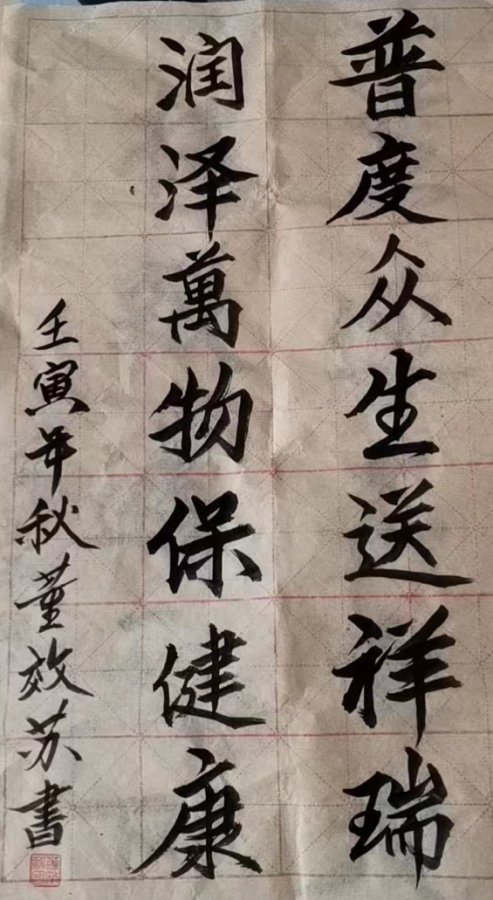 普度众生送祥瑞
润泽萬物保健康
壬寅年秋董效苏書